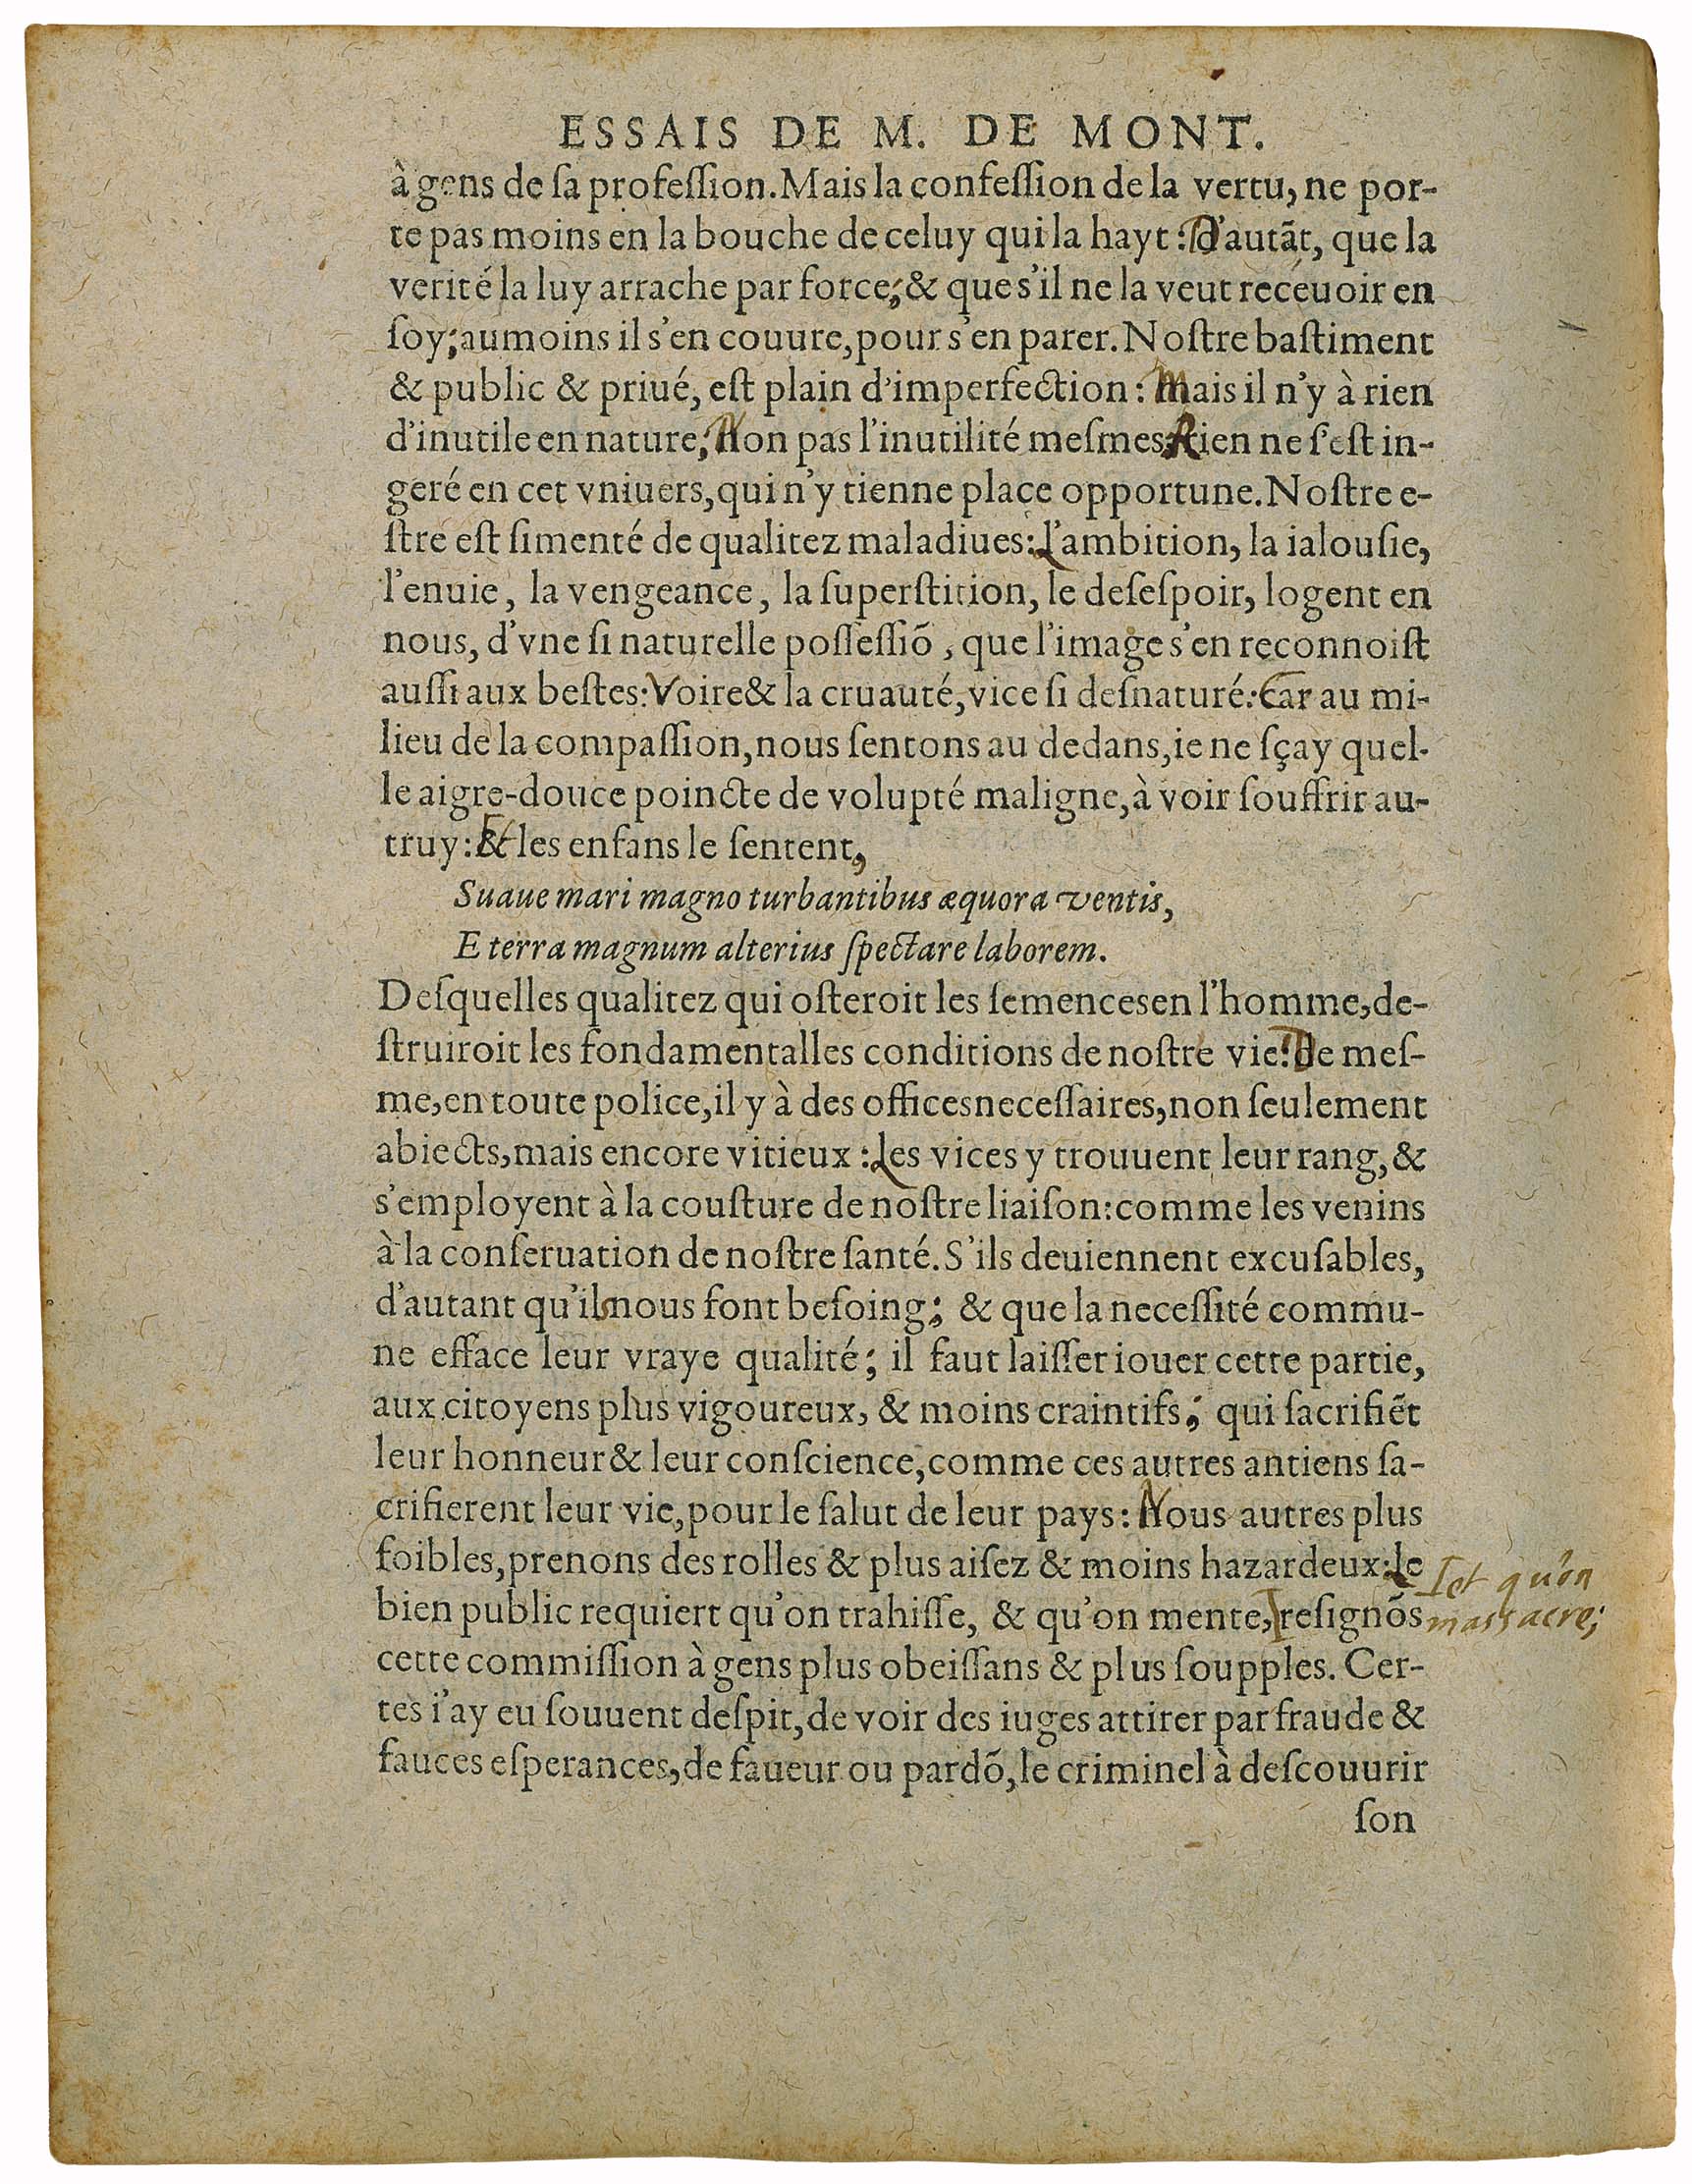 ESSAIS DE M. DE MONT.
à gens de ſa profeſſion. Mais la confeſſion de la vertu, ne por-
te pas moins en la bouche de celuy qui la hayt: D'autãt, que la
verité la luy arrache par force, & que s'il ne la veut receuoir en
ſoy, aumoins il s'en couure, pour s'en parer. Noſtre baſtiment
& public & priué, eſt plain d'imperfection: Mais il n'y à rien
d'inutile en nature, Non pas l'inutilité meſmes, Rien ne s'eſt in-
geré en cet vniuers, qui n'y tienne place opportune. Noſtre e-
ſtre eſt ſimenté de qualitez maladiues: L'ambition, la ialouſie,
l'enuie, la vengeance, la ſuperſtition, le deſeſpoir, logent en
nous, d'vne ſi naturelle poſſeſſiõ, que l'image s'en reconnoiſt
auſſi aux beſtes: Voire & la cruauté, vice ſi deſnaturé: Car au mi-
lieu de la compaſſion, nous ſentons au dedans, ie ne ſçay quel-
le aigre-douce poincte de volupté maligne, à voir ſouffrir au-
truy: Et les enfans le ſentent,
Suaue mari magno turbantibus æquora ventis,
E terra magnum alterius ſpectare laborem.
Deſquelles qualitez qui oſteroit les ſemences en l'homme, de-
ſtruiroit les fondamentalles conditions de noſtre vie: De meſ-
me, en toute police, il y à des offices neceſſaires, non ſeulement
abiects, mais encore vitieux: Les vices y trouuent leur rang, &
s'employent à la couſture de noſtre liaiſon: comme les venins
à la conſeruation de noſtre ſanté. S'ils deuiennent excuſables,
d'autant qu'ils nous font beſoing, & que la neceſſité commu-
ne efface leur vraye qualité; il faut laiſſer iouer cette partie,
aux citoyens plus vigoureux, & moins craintifs, qui ſacrifiẽt
leur honneur & leur conſcience, comme ces autres antiens ſa-
crifierent leur vie, pour le ſalut de leur pays: Nous autres plus
foibles, prenons des rolles & plus aiſez & moins hazardeux: Le
bien public requiert qu'on trahiſſe, & qu'on mente, reſignõs
et qu'on
massacre;
cette commiſſion à gens plus obeiſſans & plus ſoupples. Cer-
tes i'ay eu ſouuent deſpit, de voir des iuges attirer par fraude &
fauces eſperances, de faueur ou pardõ, le criminel à deſcouurir
ſon